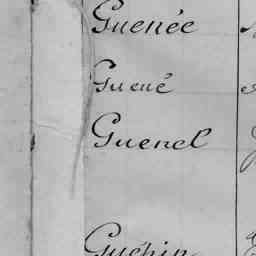 Guenée
Guené
Guenel
Guépin